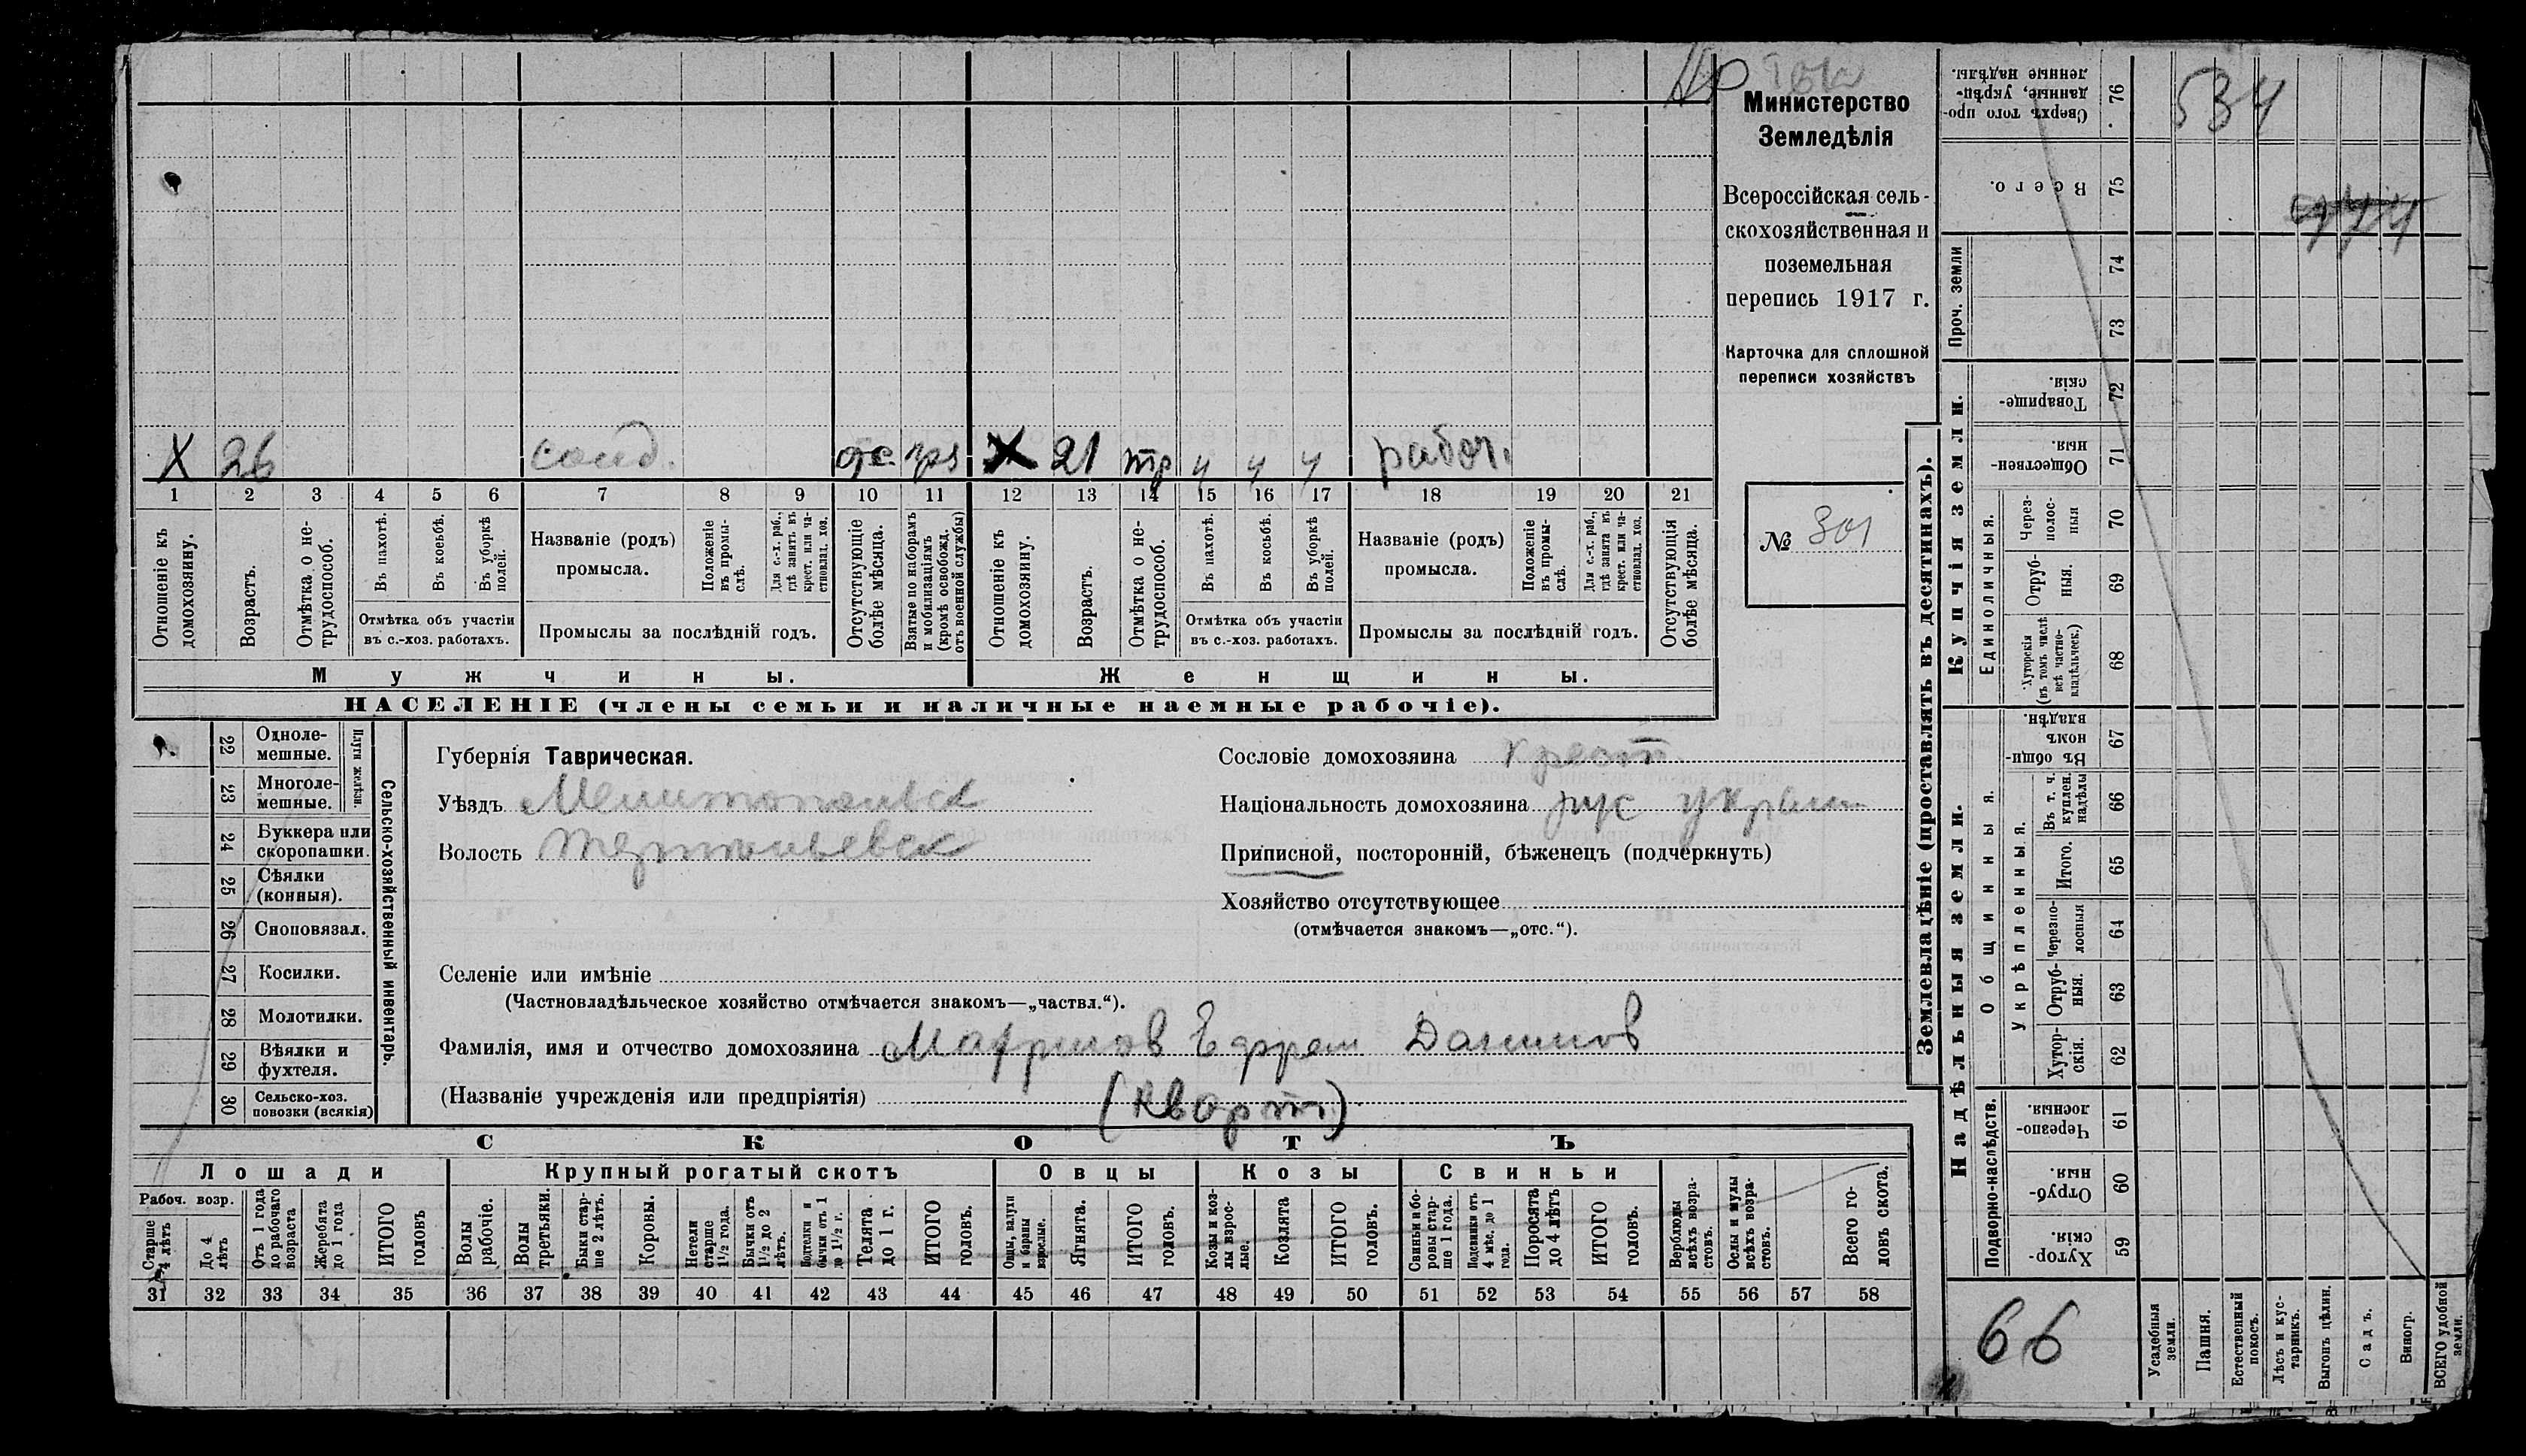 Министерство
Земледѣлія
Всероссійская сель-
скохозяйственная и
поземельная
перепись 1917 г.
Карточка для сплошной
переписи хозяйствъ
№ 301
X 26 солд. отс. X 21 4 4 4 работ.
1 2 3 4 5 6 7 8 9 10 11 12 13 14 15 16 17 18 19 20 21
Отношеніе къ домохозяину.
Возрастъ.
Отмѣтка о не-
трудоспособ.
Въ пахотѣ.
Въ косьбѣ.
Въ уборкѣ полей.
Отмѣтка объ участіи
въ с.-хоз. работахъ.
Названіе (родъ)
промысла.
Положеніе
въ промы-
слѣ.
Для с.-х. раб.,
гдѣ занятъ въ
крест. или ча-
стновлад. хоз.
Промыслы за послѣдній годъ.
Отсутствующіе
болѣе мѣсяца.
Взятые по наборамъ
и мобилизаціямъ
(кромѣ освобожд.
отъ военной службы)
Отношеніе къ
домохозяину.
Возрастъ.
Отмѣтка о не-
трудоспособ.
Въ пахотѣ.
Въ косьбѣ.
Въ уборкѣ
полей.
Отмѣтка объ участіи
въ с.-хоз. работахъ.
Названіе (родъ)
промысла.
Положеніе
въ промы-
слѣ.
Для с.-х. раб.,
гдѣ занята въ
крест. или ча-
стновлад. хоз.
Промыслы за послѣдній годъ.
Отсутствующія
болѣе мѣсяца.
Мужчины.
Женщины.
НАСЕЛЕНІЕ (члены семьи и наличные наемные рабочіе).
22 Одноле-
мешные.
23 Многоле-
мешные.
Плуги желѣзн.
24 Буккера или
скоропашки.
25 Сѣялки
(конныя).
26 Сноповязал.
27 Косилки.
28 Молотилки.
29 Вѣялки и
фухтеля.
30 Сельско-хоз.
повозки (всякія)
Сельско-хозяйственный инвентарь.
Губернія Таврическая.
Уѣздъ Мелитопольск
Волость
Сословіе домохозяина крест.
Національность домохозяина рус украин
Приписной, посторонній, бѣженецъ (подчеркнуть)
Хозяйство отсутствующее
(отмѣчается знакомъ—„отс.“).
Селеніе или имѣніе
(Частновладѣльческое хозяйство отмѣчается знакомъ—„частвл.“).
Фамилія, имя и отчество домохозяина Ефрем
(Названіе учрежденія или предпріятія)
(кварт.)
СКОТЪ
Лошади
Крупный рогатый скотъ
Овцы
Козы
Свиньи
Рабоч. возр.
Старше
4 лѣтъ
До 4
лѣтъ
Отъ 1 года
до рабочаго
возраста
Жеребята
до 1 года
ИТОГО
головъ
Волы
рабочіе.
Волы
третьяки.
Быки стар-
ше 2 лѣтъ.
Коровы.
Нетели
старше
1½ года.
Бычки отъ
1½ до 2
лѣтъ.
Подтелки и
бычки отъ 1
до 1½ г.
Телята
до 1 г.
ИТОГО
головъ.
Овцы, валухи
и бараны
взрослые.
Ягнята.
ИТОГО
головъ.
Козы и коз-
лы взрос-
лые.
Козлята
ИТОГО
головъ.
Свиньи и бо-
ровы стар-
ше 1 года.
Подсвинки отъ
4 мѣс. до 1
года.
Поросята
до 4 лѣтъ
ИТОГО
головъ.
Верблюды
всѣхъ возра-
стовъ.
Ослы и мулы
всѣхъ возра-
стовъ.
Всего го-
ловъ скота.
31 32 33 34 35 36 37 38 39 40 41 42 43 44 45 46 47 48 49 50 51 52 53 54 55 56 57 58
Землевладѣніе (проставлять въ десятинахъ).
Купчія земли.
Надѣльныя земли.
Сверхъ того про-
данные, укрѣп-
ленные надѣлы.
76
534
Всего.
75
Проч. земли
74
73
Товарище-
скія.
72
Обществен-
ныя
71
Единоличныя.
Через-
полос-
ныя
70
Отруб-
ныя.
69
Хуторскія
(въ томъ числѣ
всѣ частно-
владѣльческ.)
68
Общинныя.
Въ общи-
номъ
владѣн.
67
Укрѣпленныя.
Въ т. ч.
куплен.
надѣлы
66
Итого.
65
Черезпо-
лосныя
64
Отруб-
ныя.
63
Хутор-
скія.
62
Подворно-наслѣдств.
Черезпо-
лосныя.
61
Отруб-
ныя.
60
Хутор-
скія.
59
66
Усадебныя
земли.
Пашня.
Естественный
покосъ.
Лѣсъ и кус-
тарникъ.
Выгонъ цѣлин.
Садъ.
Виногр.
ВСЕГО удобной
земли.